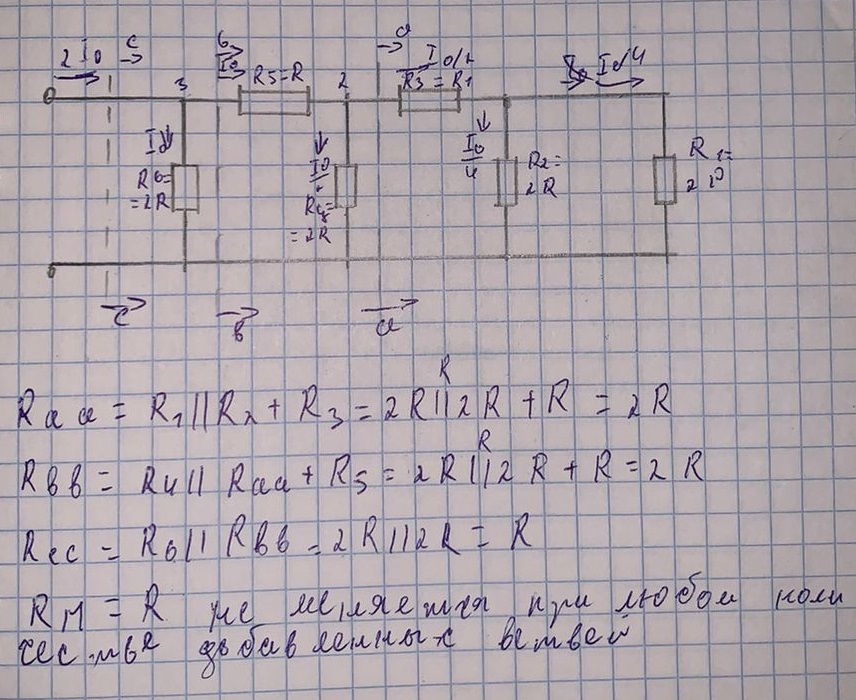 2 I0 c в I0 R5=R 2 a I0/2 R3=R1 I0/4
3
I0 R6= =2R
I0 R4= =2R
I0/4 R2= 2R
R1= 2R
c в a
Rаа = R1||R2 + R3 = 2R||2R + R = 2R
R
Rвв = R4|| Rаа + R5 = 2R||2R + R = 2R
R
Rcc = R6|| Rвв = 2R||2R = R
RM = R не меняется при любом коли
честве добавленных ветвей